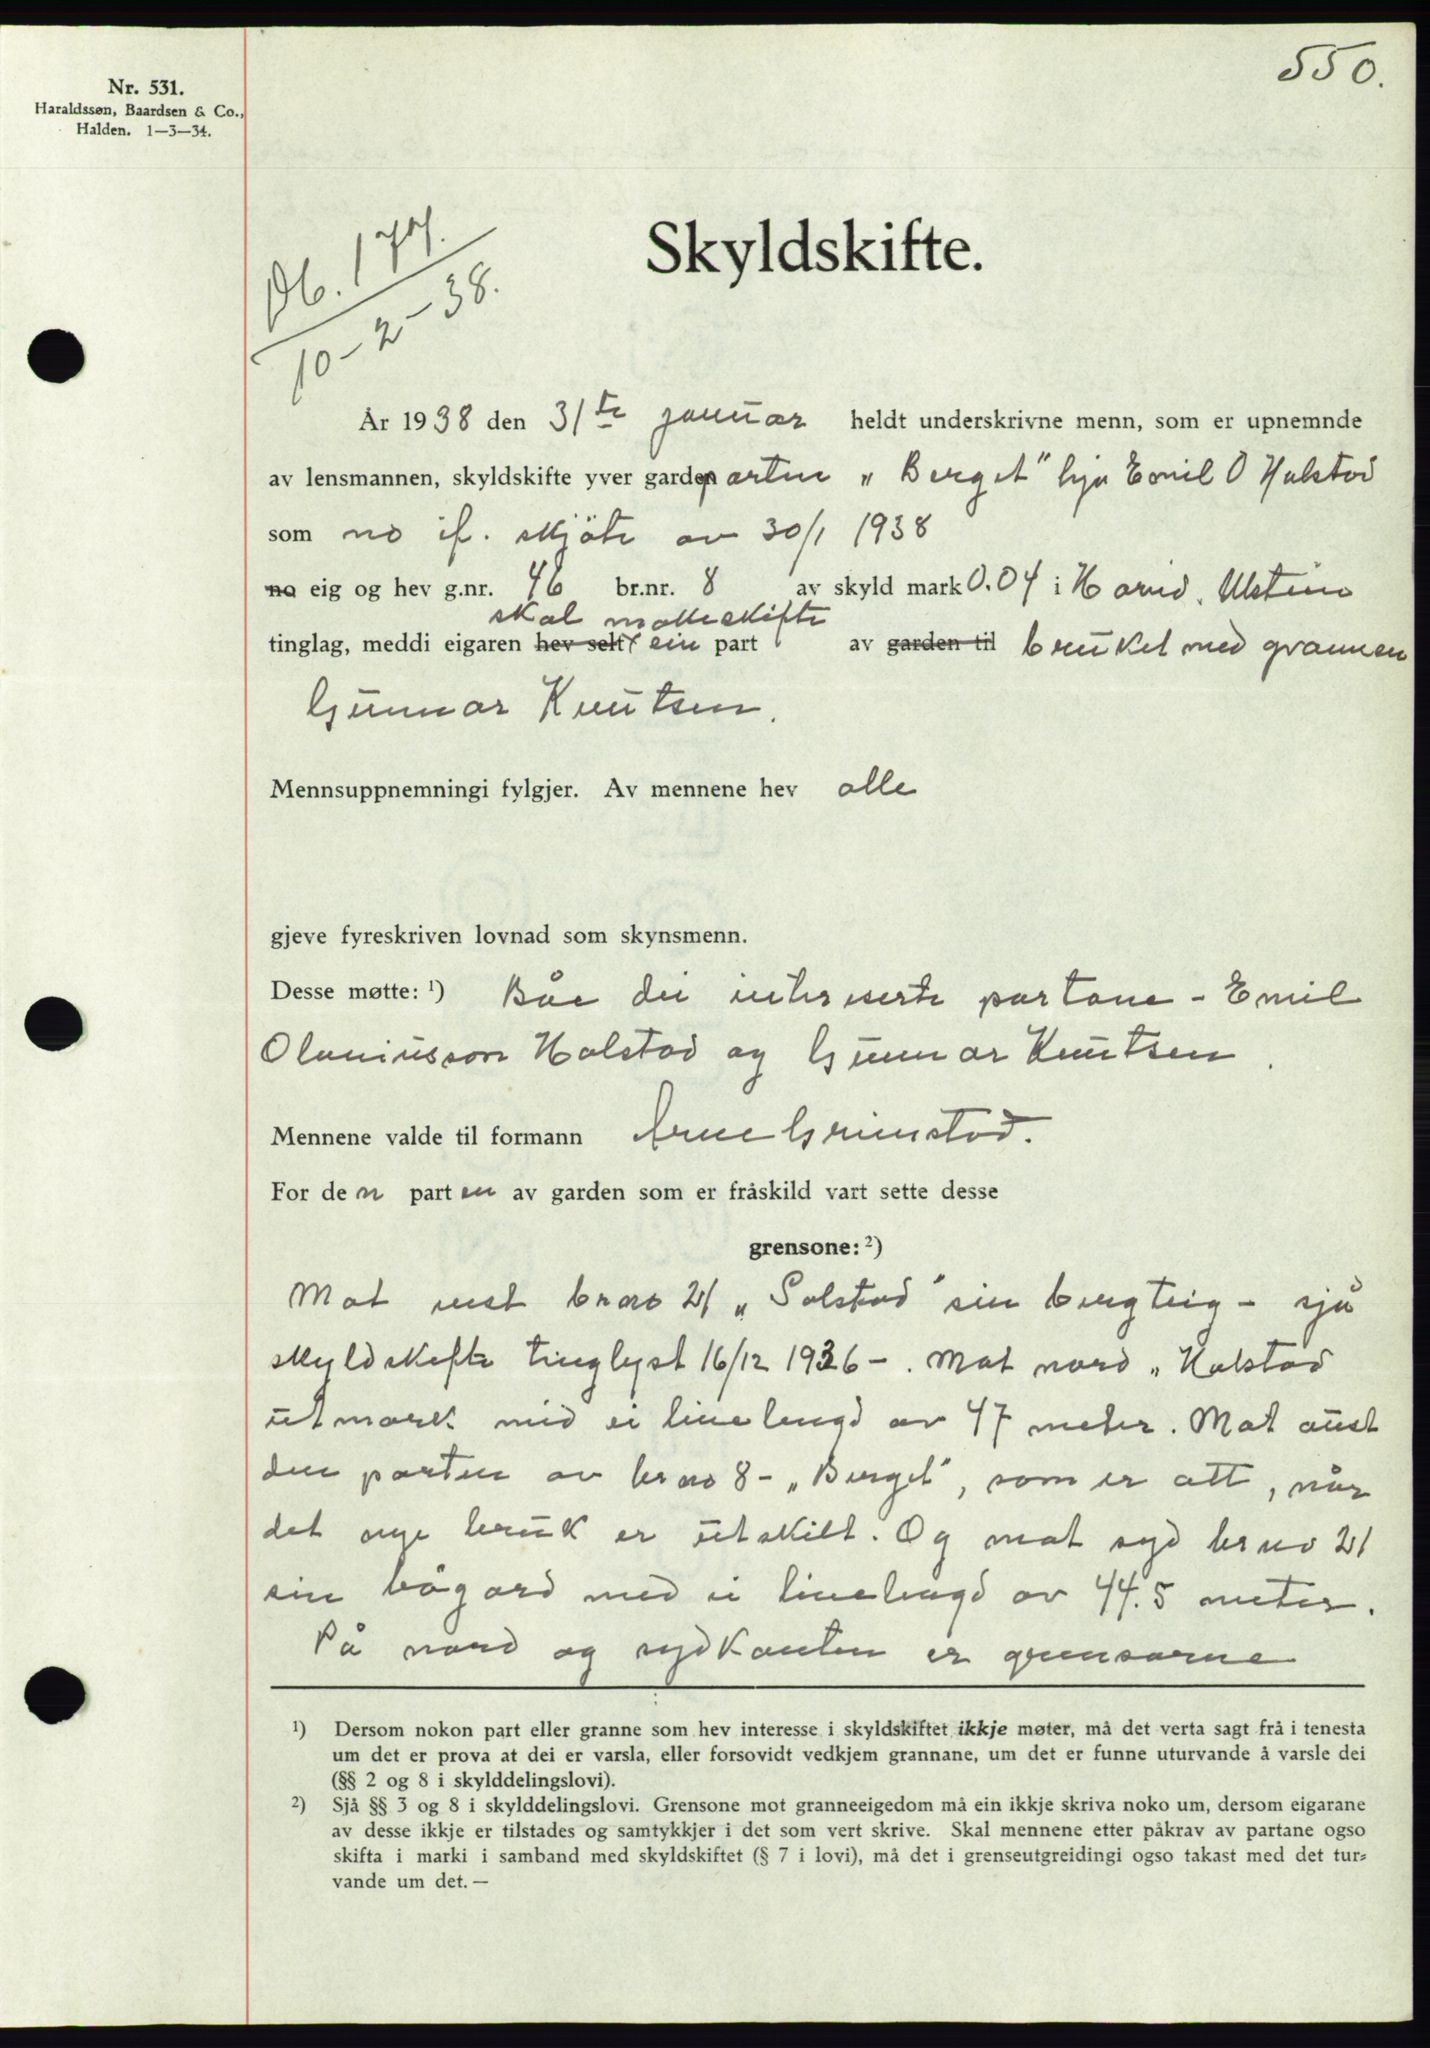 550.
Nr. 531.
Haraldssøn, Baardsen & Co.,
Halden. 1—3—34.
Db. 177.
10-2-38.
Skyldskifte.
År 1938 den 31te januar heldt underskrivne menn, som er upnemnde
av lensmannen, skyldskifte yver garden parten „Berget" hja Emil O Halstad
som no if. skjöte av 30/1 1938
no eig og hev g.nr. 46 br.nr. 8 av skyld mark 0.04 i Hareid, Ulstein
skal makeskifte
tinglag, meddi eigaren hev selt ein part av garden til bruket med grannen
Gunnar Knutsen.
Mennsuppnemningi fylgjer. Av mennene hev alle
gjeve fyreskriven lovnad som skynsmenn.
Desse møtte: ¹) Båe dei interiserte partane - Emil
Olaniusson Halstad og Gunnar Knutsen.
Mennene valde til formann Arne Grimstad.
For den parten av garden som er fråskild vart sette desse
grensone: ²)
Mot vest br no 21 „Solstad" sin bergteig - sjå
skyldskifte tinglyst 16/12 1936 -. Mot nord „Halstad
utmark med ei linelengd av 47 meter. Mot aust
den parten av br no 8 - „Berget", som er att, når
det nye bruk er utskilt. Og mot syd br no 21
sin bøgard med ei linelengd av 44.5 meter.
På nord og sydkanten er grensorne
¹) Dersom nokon part eller granne som hev interesse i skyldskiftet ikkje møter, må det verta sagt frå i tenesta
um det er prova at dei er varsla, eller forsovidt vedkjem grannane, um det er funne uturvande å varsle dei
(§§ 2 og 8 i skylddelingslovi).
²) Sjå §§ 3 og 8 i skylddelingslovi. Grensone mot granneeigedom må ein ikkje skriva noko um, dersom eigarane
av desse ikkje er tilstades og samtykkjer i det som vert skrive. Skal mennene etter påkrav av partane ogso
skifta i marki i samband med skyldskiftet (§ 7 i lovi), må det i grenseutgreidingi ogso takast med det tur-
vande um det. —